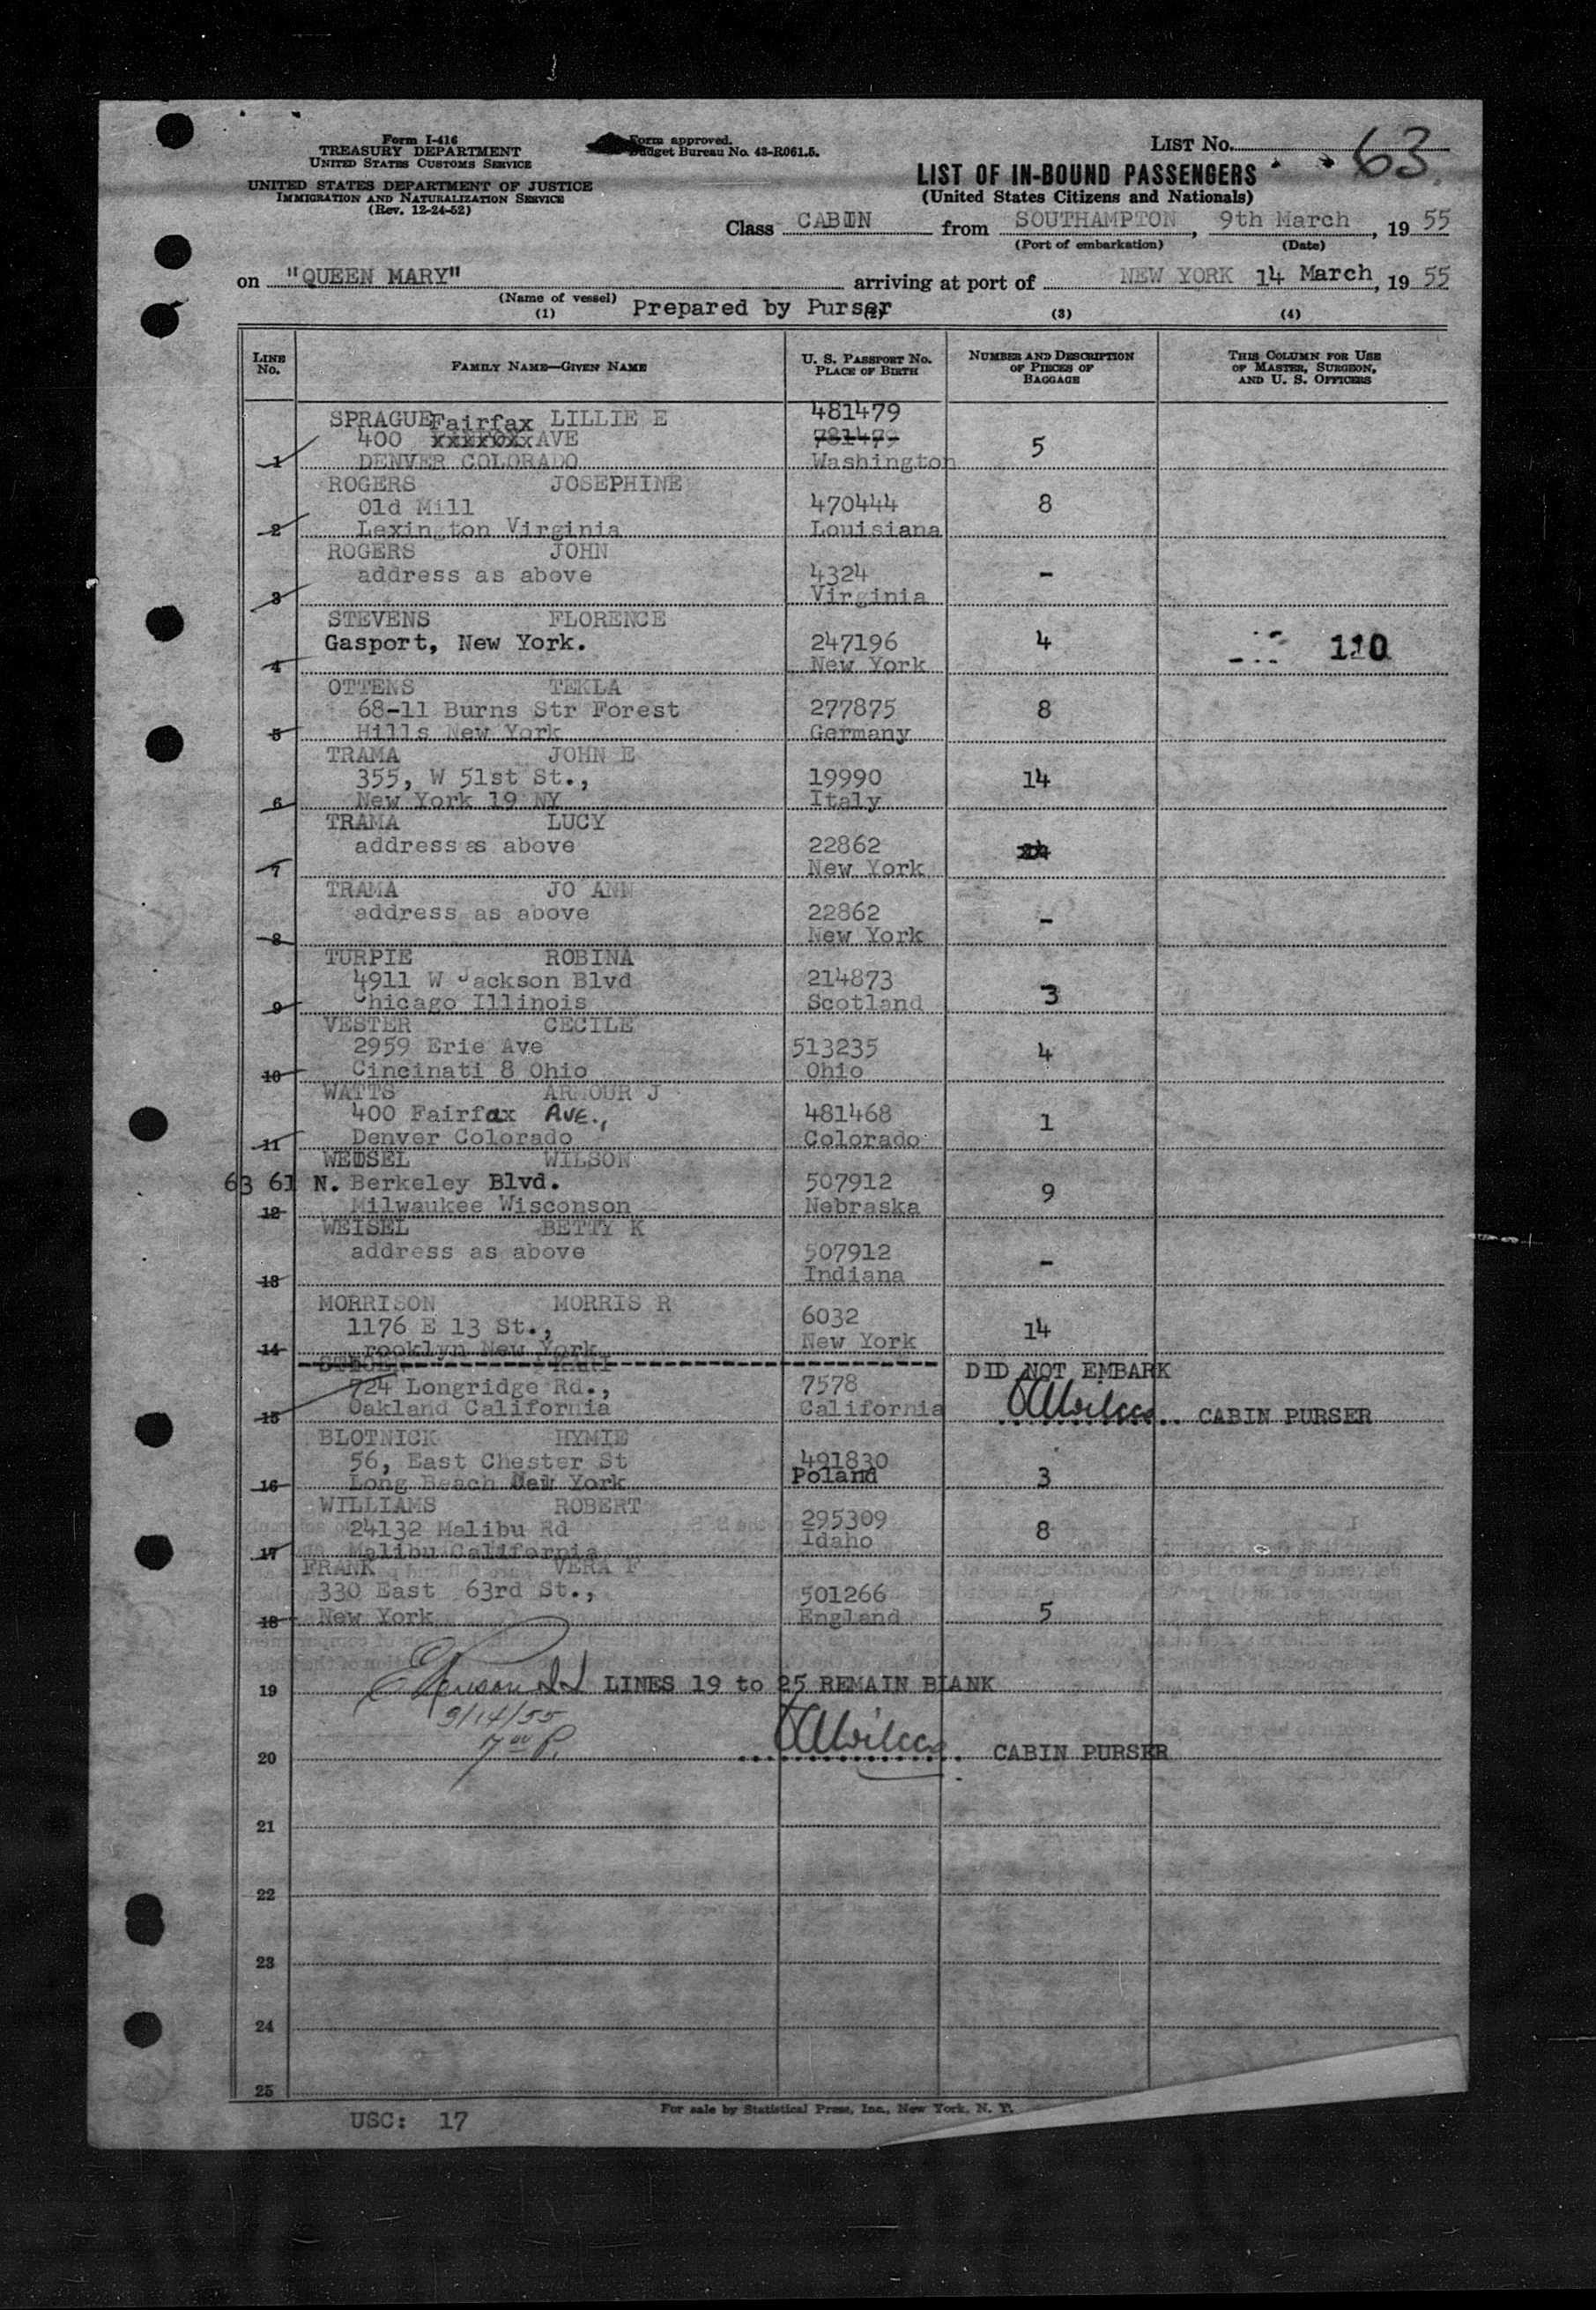 Form I-416
TREASURY DEPARTMENT
UNITED STATES CUSTOMS SERVICE
UNITED STATES DEPARTMENT OF JUSTICE
IMMIGRATION AND NATURALIZATION SERVICE
(Rev. 12-24-52)
Form approved.
Budget Bureau No. 43-R061.5.
LIST No. 63
LIST OF IN-BOUND PASSENGERS
(United States Citizens and Nationals)
Class CABIN from SOUTHAMPTON, 9th March, 19 55
(Port of embarkation) (Date)
on "QUEEN MARY" arriving at port of NEW YORK 14 March, 19 55
(Name of vessel)
Prepared by Purser
(1) (2) (3) (4)
LINE No. FAMILY NAME—GIVEN NAME U. S. PASSPORT NO. PLACE OF BIRTH NUMBER AND DESCRIPTION OF PIECES OF BAGGAGE THIS COLUMN FOR USE OF MASTER, SURGEON, AND U. S. OFFICERS
SPRAGUE LILLIE E 481479
400 Fairfax AVE 781479 5
1 DENVER COLORADO Washington
ROGERS JOSEPHINE
Old Mill 470444 8
2 Lexington Virginia Louisiana
ROGERS JOHN
address as above 4324 -
3 Virginia
STEVENS FLORENCE
Gasport, New York. 247196 4 110
4 New York
OTTENS TEKLA
68-11 Burns Str Forest 277875 8
5 Hills New York Germany
TRAMA JOHN E
355, W 51st St., 19990 14
6 New York 19 NY Italy
TRAMA LUCY
address as above 22862
7 New York
TRAMA JO ANN
address as above 22862 -
8 New York
TURPIE ROBINA
4911 W Jackson Blvd 214873 3
9 Chicago Illinois Scotland
VESTER CECILE
2959 Erie Ave 513235 4
10 Cincinati 8 Ohio Ohio
WATTS ARMOUR J
400 Fairfax AVE., 481468 1
11 Denver Colorado Colorado
WEISEL WILSON
63 61 N. Berkeley Blvd. 507912 9
12 Milwaukee Wisconson Nebraska
WEISEL BETTY K
address as above 507912 -
13 Indiana
MORRISON MORRIS R
1176 E 13 St., 6032 14
14 rooklyn New York New York
DID NOT EMBARK
724 Longridge Rd., 7578
15 Oakland California California CABIN PURSER
BLOTNICK HYMIE
56, East Chester St 491830
16 Long Beach New York Poland 3
WILLIAMS ROBERT
24132 Malibu Rd 295309 8
17 Malibu California Idaho
FRANK VERA F
330 East 63rd St., 501266
18 New York England 5
19 LINES 19 to 25 REMAIN BLANK
3/14/55
7 00 P.
20 CABIN PURSER
21
22
23
24
25
USC: 17
For sale by Statistical Press, Inc., New York, N. Y.